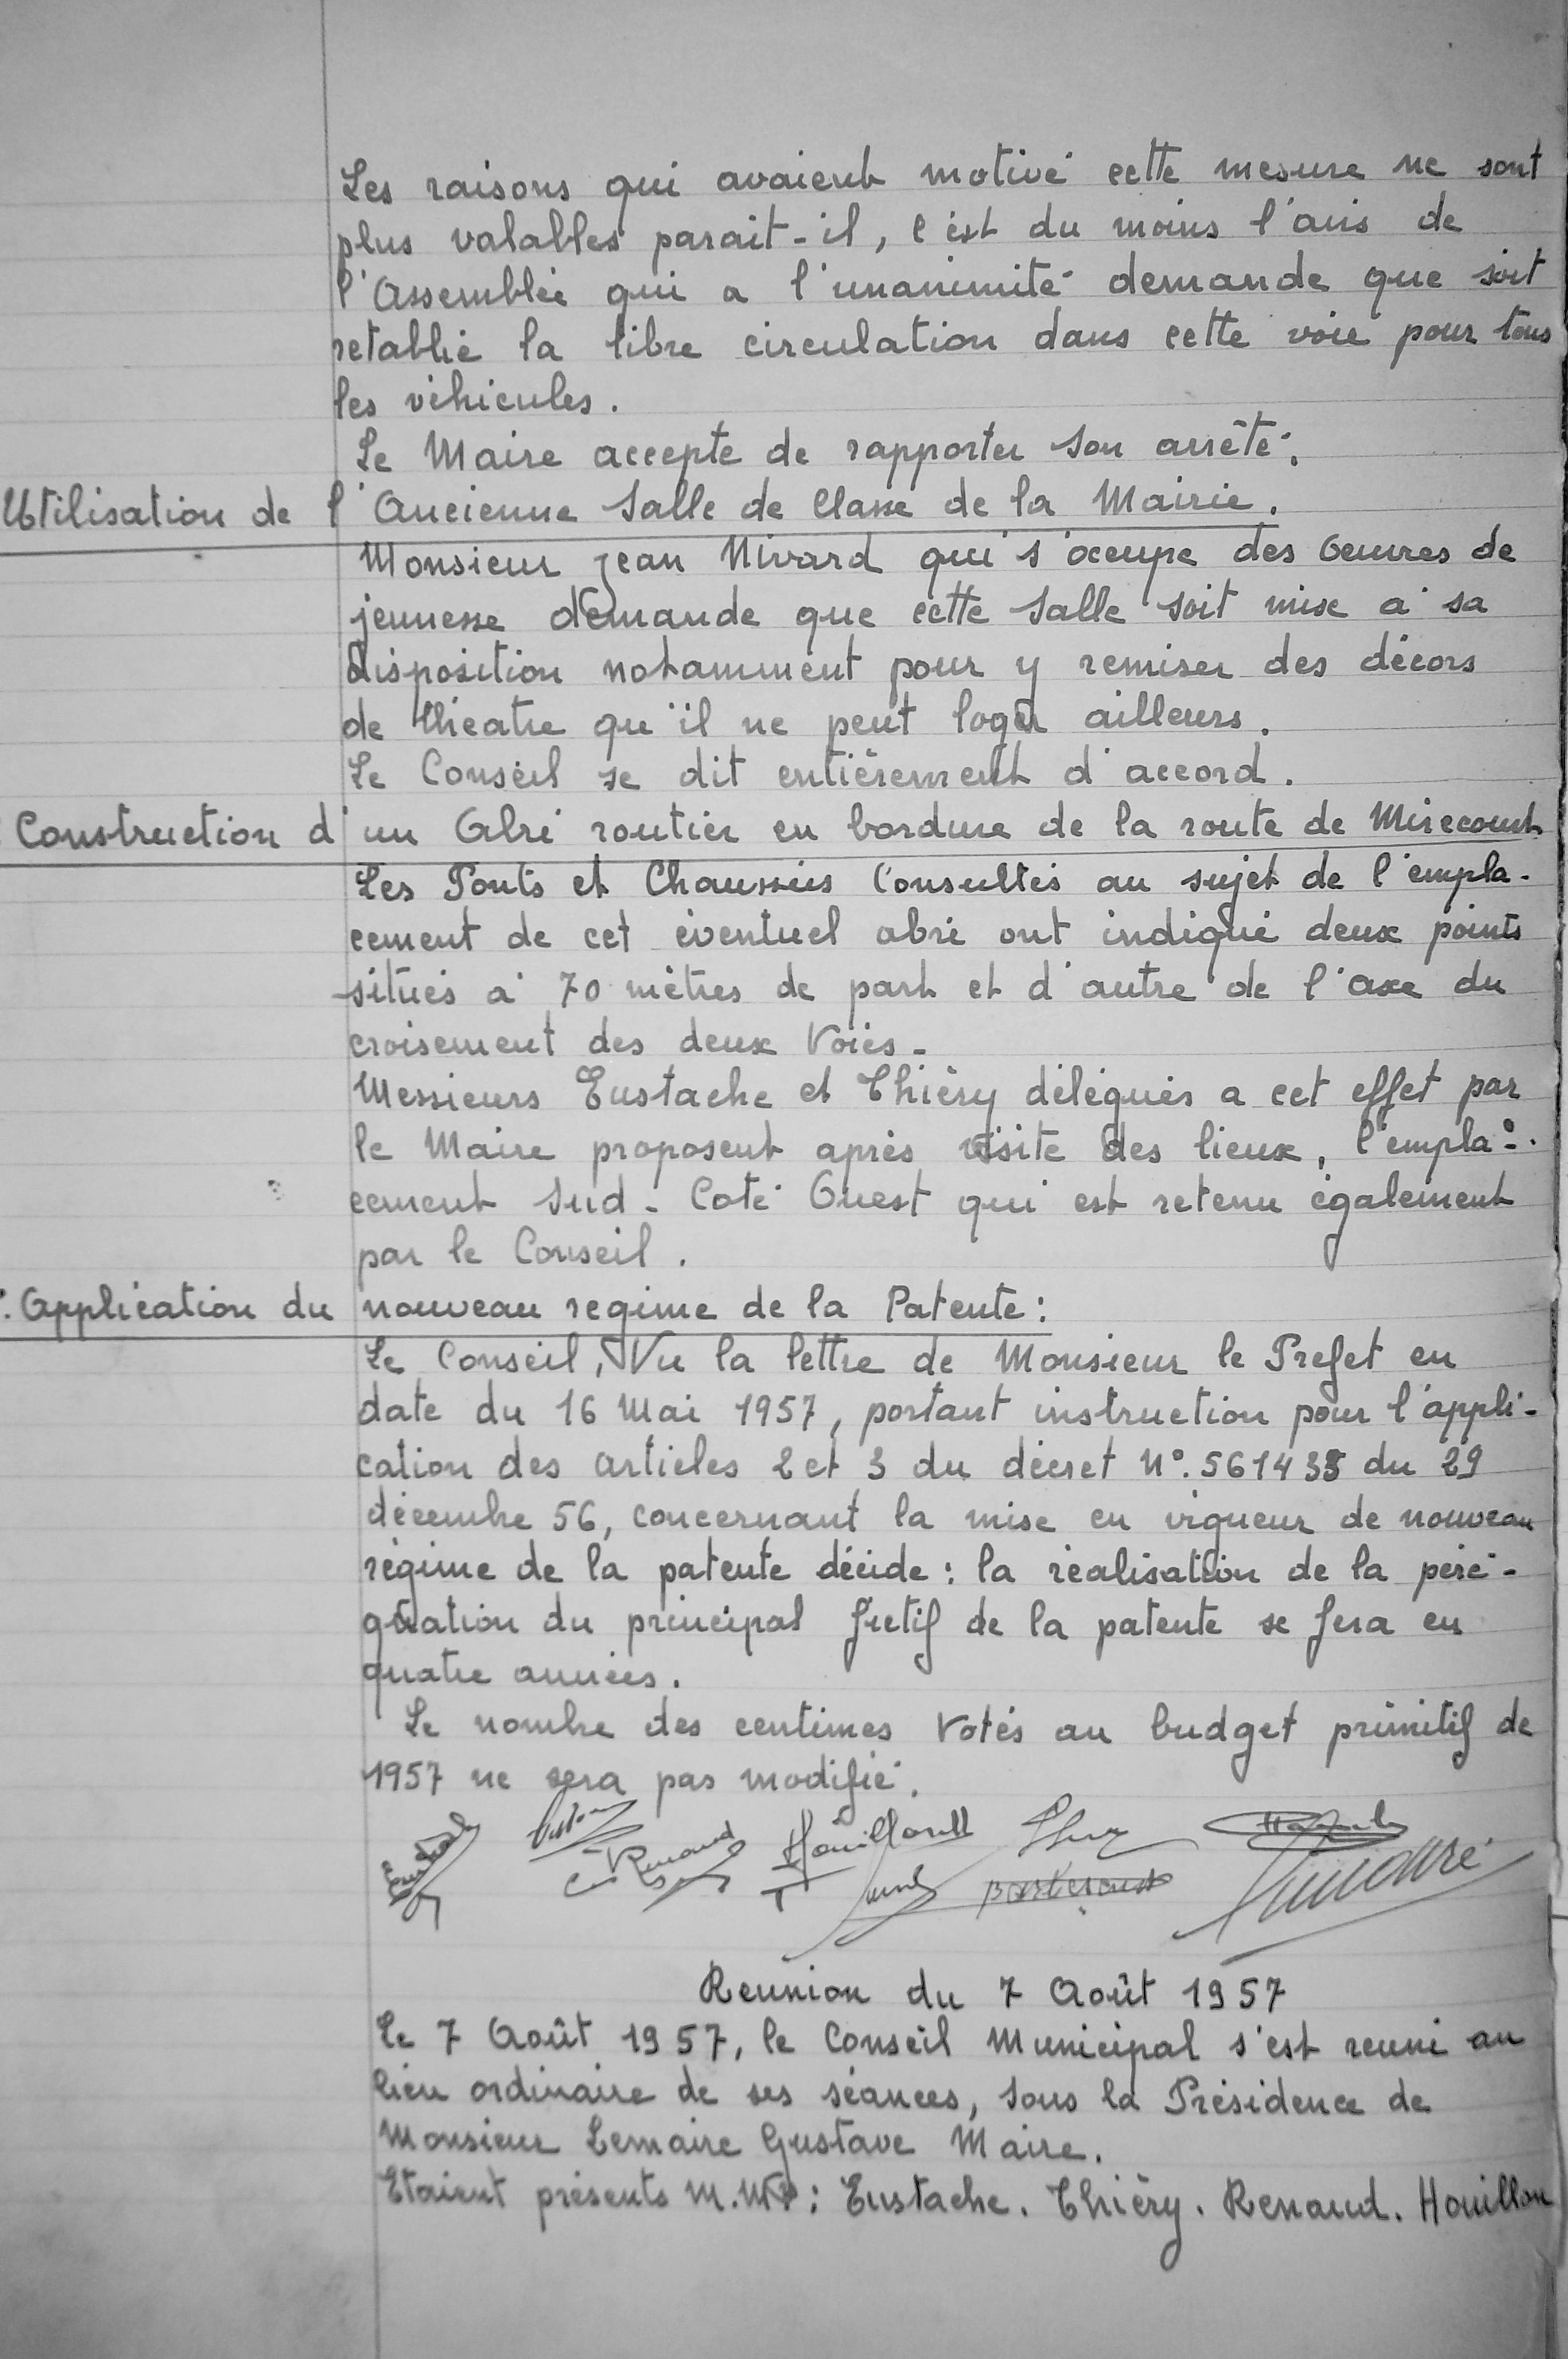 Les raisons qui avaient motivé cette mesure ne sont
plus valables parait-il, c'est du moins l'avis de
l'Assemblée qui a l'unanimité demande que soit
retablie la libre circulation dans cette voie pour tous
les véhicules.
Le Maire accepte de rapporter son arrêté.
Utilisation de l'Ancienne Salle de Classe de la Mairie.
Monsieur Jean Nivard qui s'occupe des Oeuvres de
jeunesse demande que cette salle soit mise à sa
disposition notamment pour y remiser des décors
de théatre qu'il ne peut loger ailleurs.
Le Conseil se dit entièrement d'accord.
Construction d'un Abri routier en bordure de la route de Mirecourt
Les Ponts et Chaussées Consultés au sujet de l'empla-
cement de cet éventuel abri ont indiqué deux points
situés à 70 mètres de part et d'autre de l'axe du
croisement des deux Voies-
Messieurs Eustache et Thiéry délégués a cet effet par
le Maire proposent après visite des lieux, l'empla-
cement Sud-Coté Ouest qui est retenu également
par le Conseil.
Application du nouveau regime de la Patente:
Le Conseil, Vu la lettre de Monsieur le Prefet en
date du 16 Mai 1957, portant instruction pour l'appli-
cation des articles 2 et 3 du décret N°. 561435 du 29
décembre 56, concernant la mise en vigueur de nouveau
régime de la patente décide: la réalisation de la péré-
quation du principal fictif de la patente se fera en
quatre années.
Le nombre des centimes Votés au budget primitif de
1957 ne sera pas modifié.
Renaud Houillon
Reunion du 7 Août 1957
Le 7 Août 1957, le Conseil Municipal s'est reuni au
lieu ordinaire de ses séances, sous la Présidence de
Monsieur Lemaire Gustave Maire.
Etaient présents M.M: Eustache. Thiéry. Renaud. Houillon